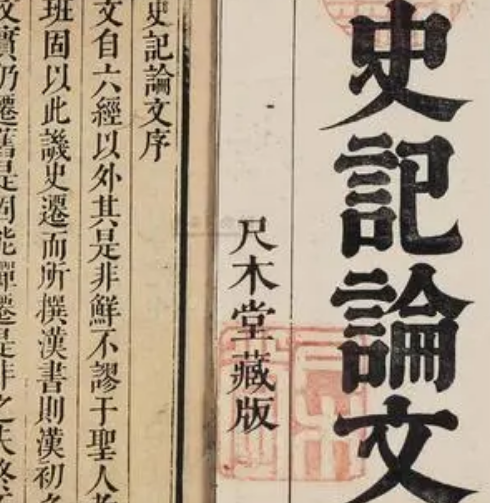 史記論文
尺木堂藏版
史記論文序
文自六經以外其是非鮮不謬于聖人者
班固以此譏史遷而所撰漢書則漢初
文實仍遷舊是固能彈遷是非之失終